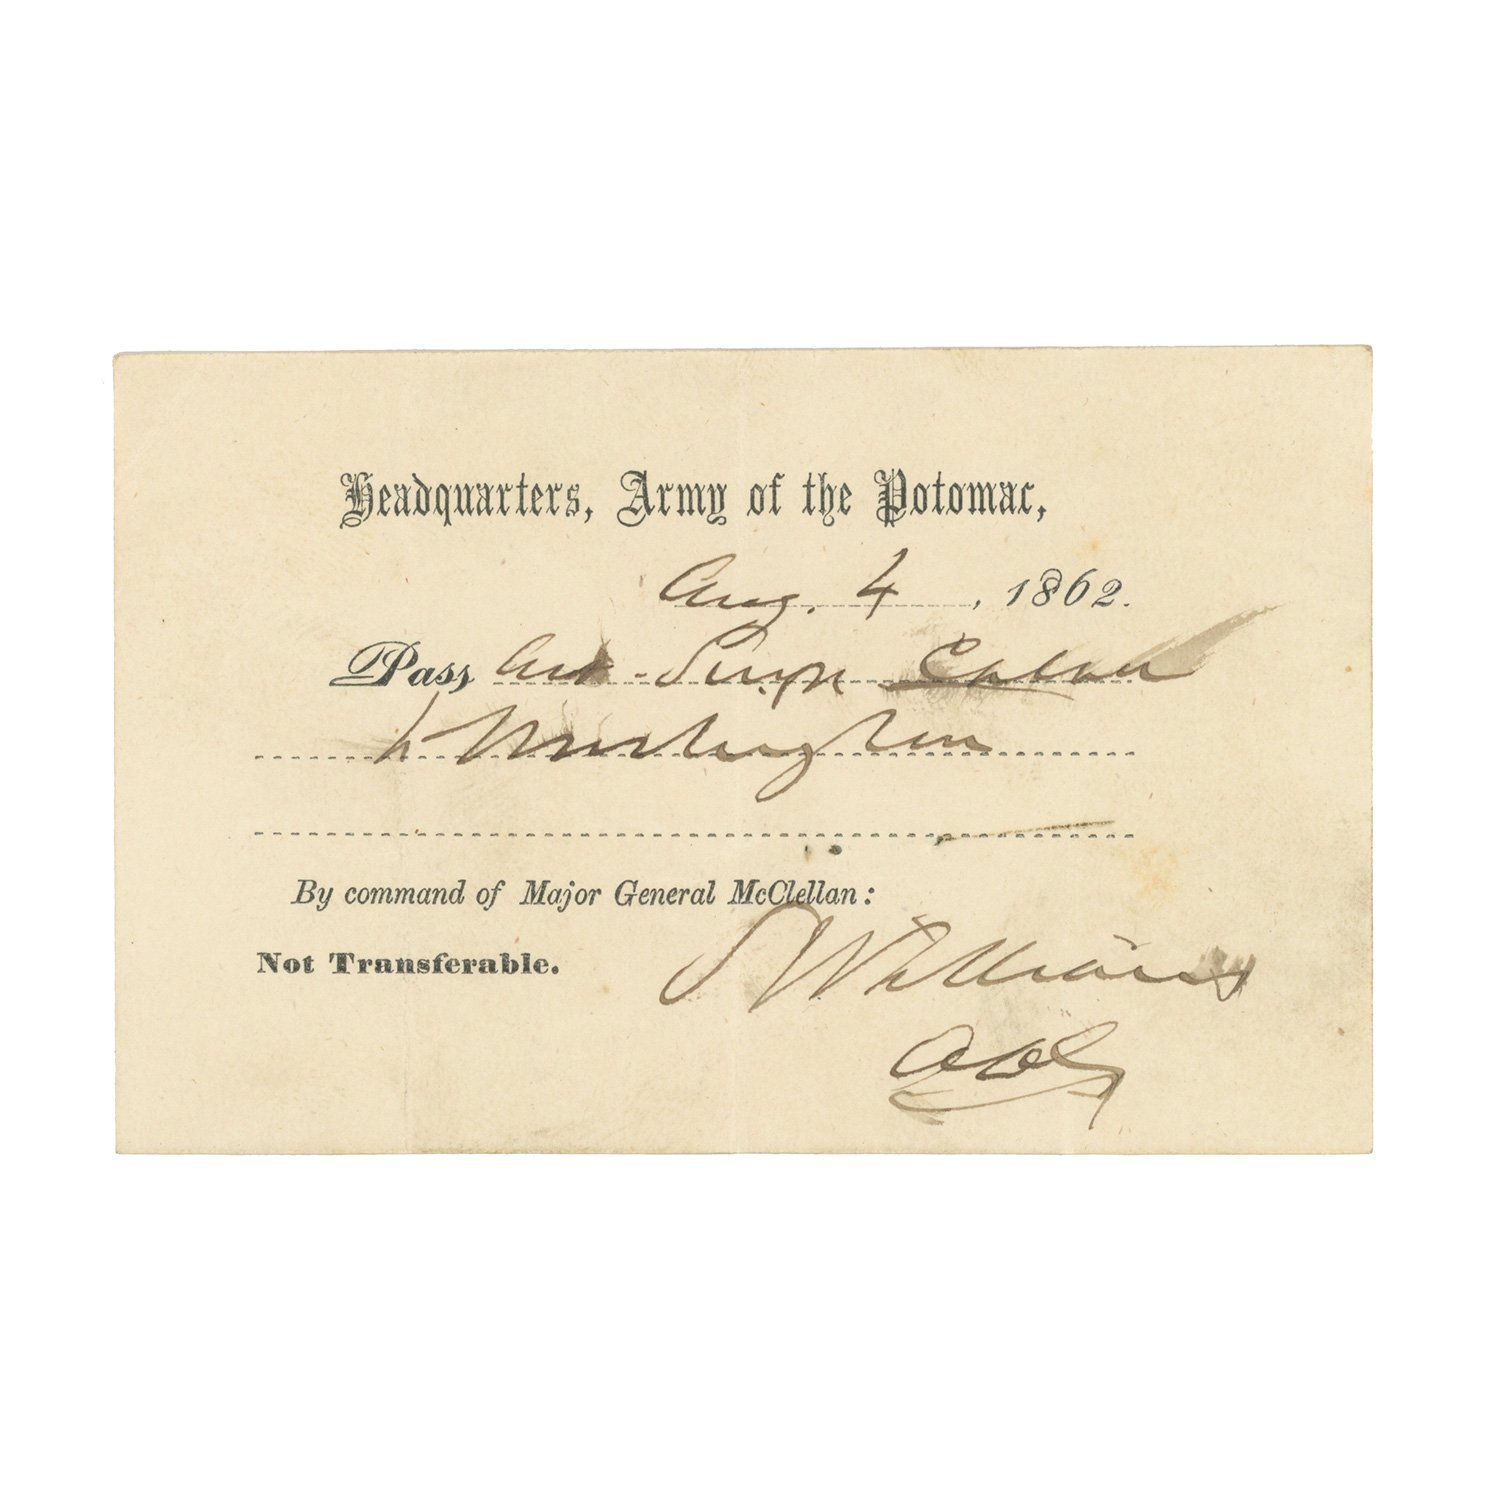 Headquarters, Army of the Potomac,
Aug. 4, 1862.
Pass Ast. Surgn
to Washington
By command of Major General McClellan:
Not Transferable.
S Williams
AAG